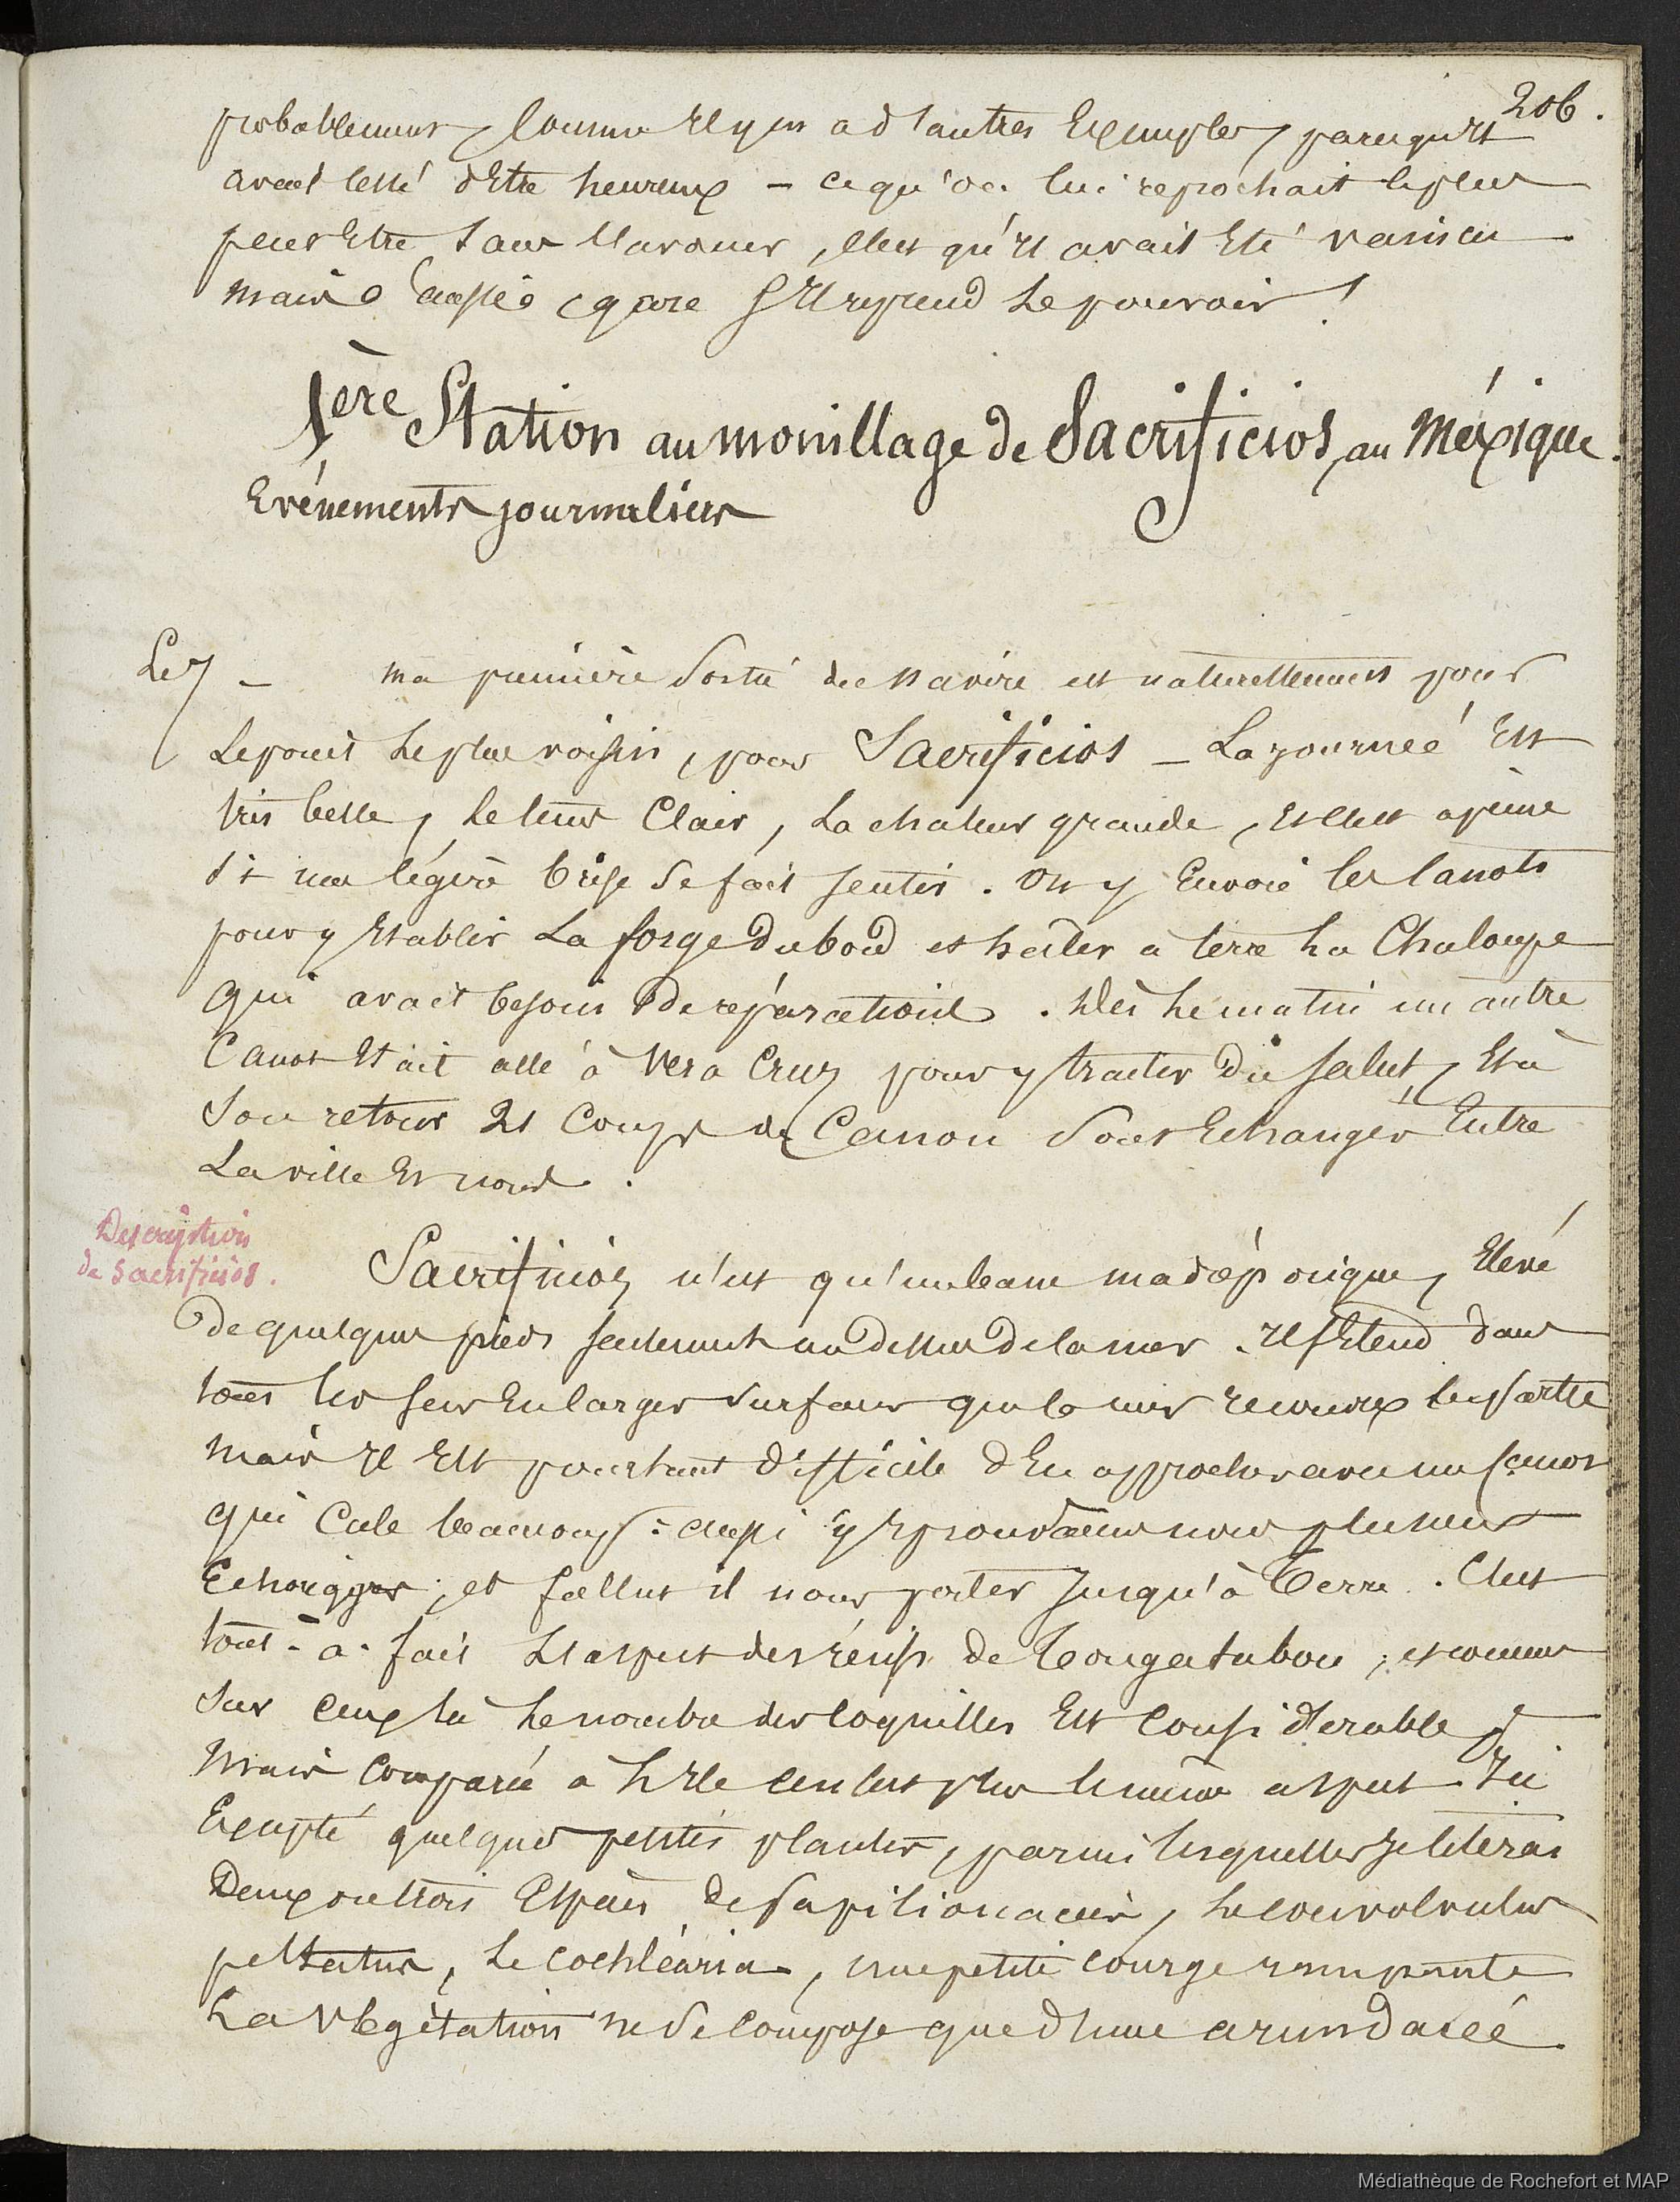 206.
probablement, comme il y en a d'autres exemples, parcequ'il
avait cessé d'etre heureux - ce qu'on lui reprochait le plus
peut etre sans l'avouer, c'est qu'il avait eté vaincu
mais gare s'il reprend le pouvoir !
1ère Station au mouillage de Sacrificios, au Méxique.
Evénements journaliers
Le 7 - ma première sortie du navire est naturellement pour
le point le plus voisin, pour Sacrificios - La journée est
très belle, le tems clair, la chaleur grande, et c'est a peine
si une légère brise se fait sentir. On y envoie les canots
pour y etablir la forge du bord et haler a terre la chaloupe
qui avait besoin de réparations. Dès le matin un autre
canot etait allé à Vera Cruz pour y traiter du salut, et à
son retour 21 coups de canon sont echangés entre
la ville et nous.
Description
de Sacrificios.
Sacrificios n'est qu'un banc madréporique, elevé
de quelques pieds seulement au dessus de la mer. Il s'etend dans
tous les sens en larges surfaces que la mer recouvre en partie
mais il est pourtant difficile d'en approcher avec un canot
qui cale beaucoup : aussi y eprouvames nous plusieurs
echouages, et fallut il nous porter jusqu'à terre. C'est
tout-a-fait l'aspect des récifs de Tongatabou, et comme
sur ceux la le nombre des coquilles est considerable
mais comparée a l'ile ce n'est plus le même aspect. Ici
excepté quelques petites plantes, parmi lesquelles je citerai
deux ou trois espèces de papilionacées, le convolvulus
peltatus, le cochléaria, une petite courge rampante
la végétation ne se compose que d'une arundacée